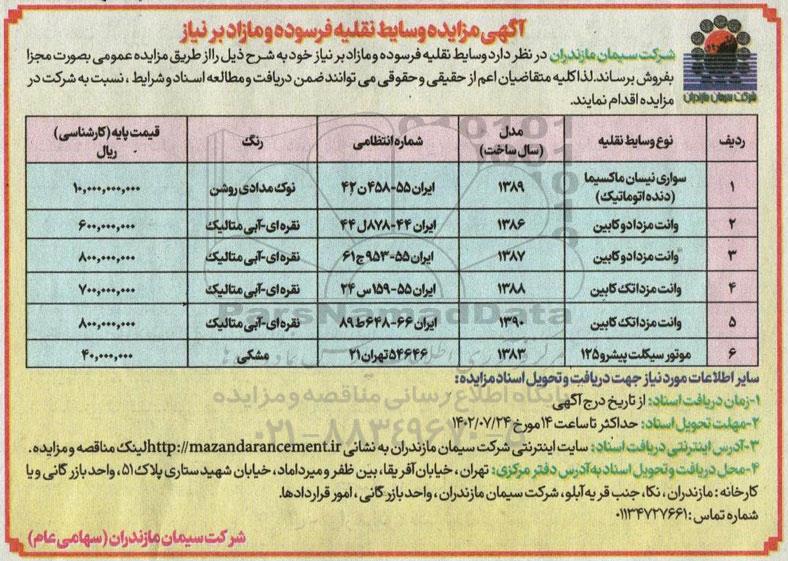 آگهی مزایده وسایط نقلیه فرسوده و مازاد بر نیاز
شرکت سیمان مازندران در نظر دارد وسایط نقلیه فرسوده و مازاد بر نیاز خود به شرح ذیل را از طریق مزایده عمومی بصورت مجزا
بفروش برساند. لذا کلیه متقاضیان اعم از حقیقی و حقوقی می توانند ضمن دریافت و مطالعه اسناد و شرایط ، نسبت به شرکت در
مزایده اقدام نمایند.
شرکت سیمان مازندران
ردیف نوع وسایط نقلیه مدل (سال ساخت) شماره انتظامی رنگ قیمت پایه (کارشناسی) ریال
۱ سواری نیسان ماکسیما (دنده اتوماتیک) ۱۳۸۹ ایران ۵۵-۴۵۸ن۴۲ نوک مدادی روشن ۱۰,۰۰۰,۰۰۰,۰۰۰
۲ وانت مزدا دو کابین ۱۳۸۶ ایران ۴۴-۸۷۸ل۴۴ نقره ای-آبی متالیک ۶۰۰,۰۰۰,۰۰۰
۳ وانت مزدا دو کابین ۱۳۸۷ ایران ۵۵-۹۵۳ج۶۱ نقره ای-آبی متالیک ۸۰۰,۰۰۰,۰۰۰
۴ وانت مزدا تک کابین ۱۳۸۸ ایران ۵۵-۱۵۹س۲۴ نقره ای-آبی متالیک ۷۰۰,۰۰۰,۰۰۰
۵ وانت مزدا تک کابین ۱۳۹۰ ایران ۶۶-۶۴۸ط۸۹ نقره ای-آبی متالیک ۸۰۰,۰۰۰,۰۰۰
۶ موتور سیکلت پیشرو ۱۲۵ ۱۳۸۳ ۵۴۶۴۶ تهران ۲۱ مشکی ۴۰,۰۰۰,۰۰۰
سایر اطلاعات مورد نیاز جهت دریافت و تحویل اسناد مزایده:
۱-زمان دریافت اسناد: از تاریخ درج آگهی
۲-مهلت تحویل اسناد: حداکثر تا ساعت ۱۴ مورخ ۱۴۰۲/۰۷/۲۴
۳-آدرس اینترنتی دریافت اسناد: سایت اینترنتی شرکت سیمان مازندران به نشانی http://mazandarancement.ir لینک مناقصه و مزایده.
۴-محل دریافت و تحویل اسناد به آدرس دفتر مرکزی: تهران ، خیابان آفریقا، بین ظفر و میرداماد، خیابان شهید ستاری پلاک ۵۱، واحد بازرگانی و یا
کارخانه : مازندران ، نکا، جنب قریه آبلو، شرکت سیمان مازندران ، واحد بازرگانی ، امور قراردادها.
شماره تماس : ۰۱۱۳۴۷۲۷۶۶۱
شرکت سیمان مازندران (سهامی عام)
ParsNamadData
پایگاه اطلاع رسانی مناقصه و مزایده
۰۲۱-۸۸۳۴۹۶۷۰